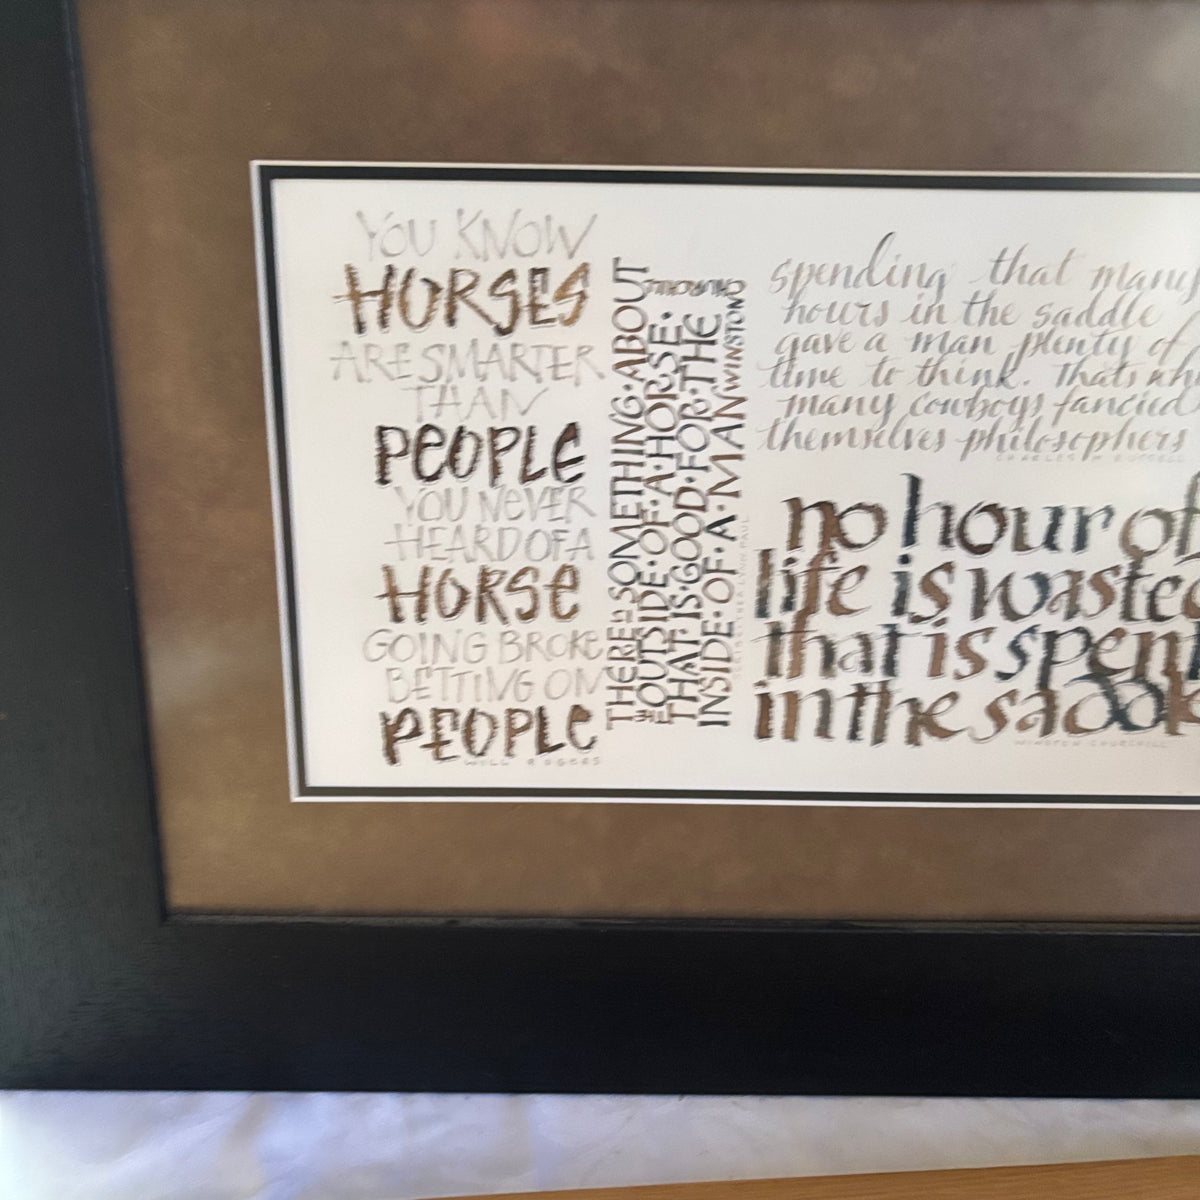 YOU KNOW
HORSES
ARE SMARTER
THAN
PEOPLE
YOU NEVER
HEARD OF A
HORSE
GOING BROKE
BETTING ON
PEOPLE
WILL ROGERS
THERE IS SOMETHING·ABOUT
THE OUTSIDE·OF·A·HORSE·
THAT·IS·GOOD·FOR·THE
INSIDE·OF·A·MAN WINSTON
CHURCHILL
spending that many
hours in the saddle
gave a man plenty of
time to think. Thats why
many cowboys fancied
themselves philosophers
CHARLES M RUSSELL
no hour of
life is wasted
that is spent
in the saddle
WINSTON CHURCHILL